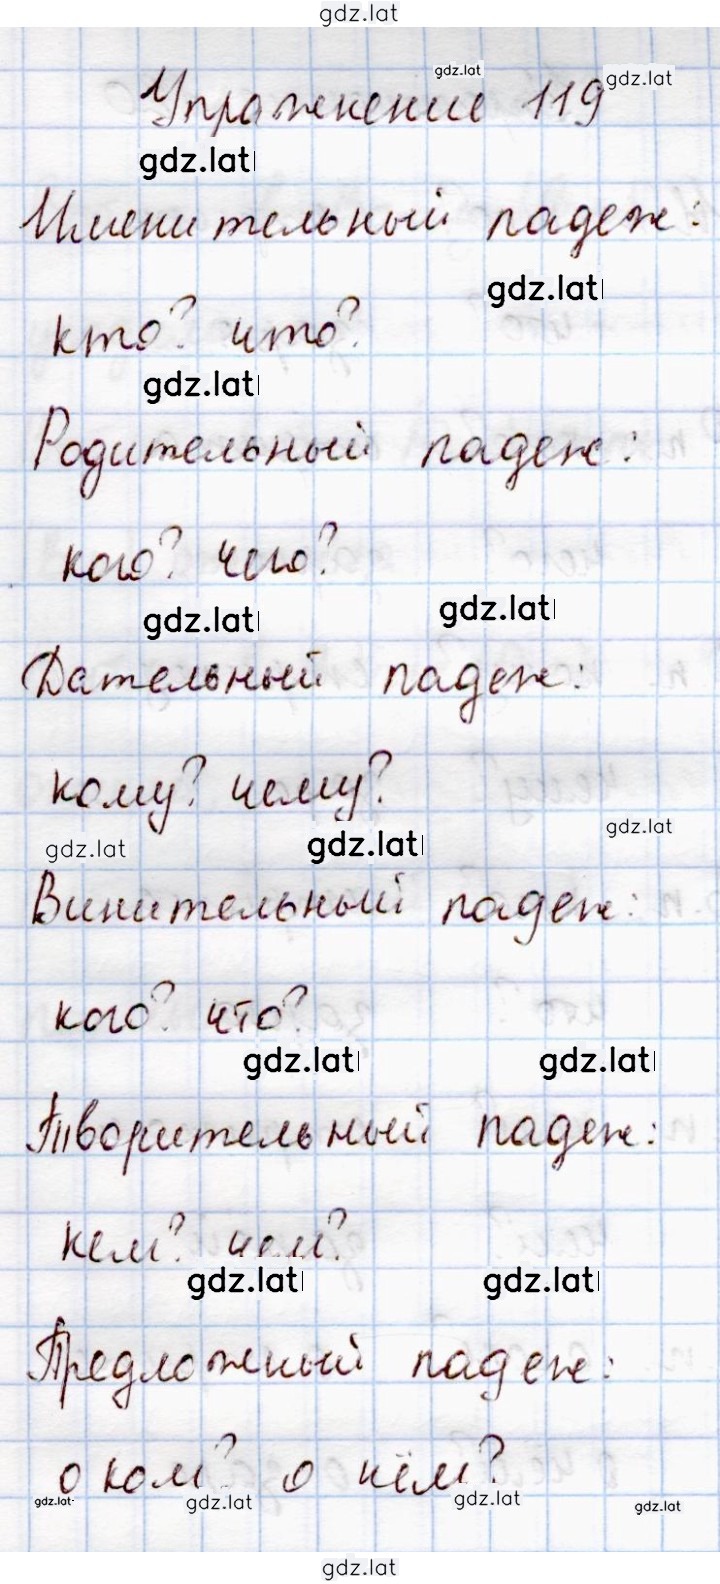 gdz.lat
Упражнение 119
gdz.lat gdz.lat
gdz.lat
Именительный падеж:
gdz.lat
кто? что?
gdz.lat
Родительный падеж:
кого? чего?
gdz.lat gdz.lat
Дательный падеж:
кому? чему?
gdz.lat gdz.lat gdz.lat
Винительный падеж:
кого? что?
gdz.lat gdz.lat
Творительный падеж:
кем? чем?
gdz.lat gdz.lat
Предложный падеж:
о ком? о чём?
gdz.lat gdz.lat gdz.lat gdz.lat
gdz.lat